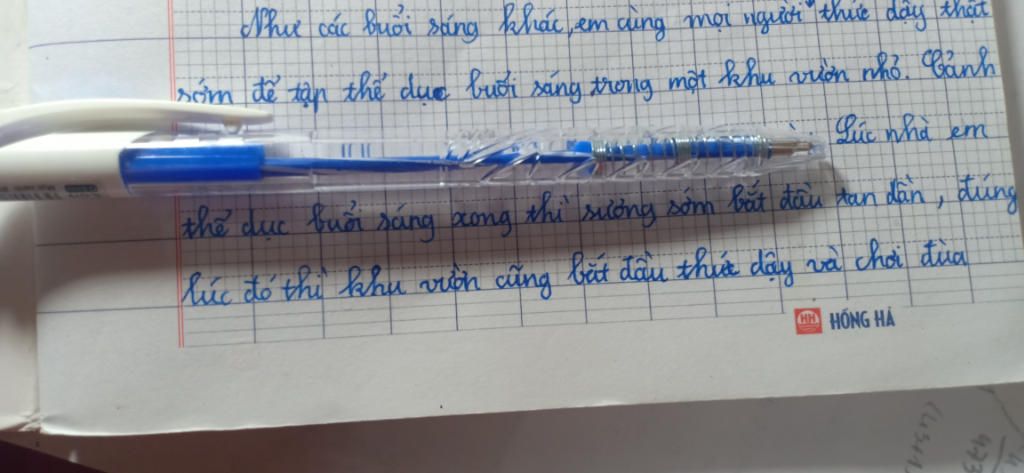 Như các buổi sáng khác, em cùng mọi người thức dậy thật
sớm để tập thể dục buổi sáng trong một khu vườn nhỏ. Cảnh
Lúc nhà em
thể dục buổi sáng xong thì sương sớm bắt đầu tan dần, đúng
lúc đó thì khu vườn cũng bắt đầu thức dậy và chơi đùa
HH HỒNG HÀ